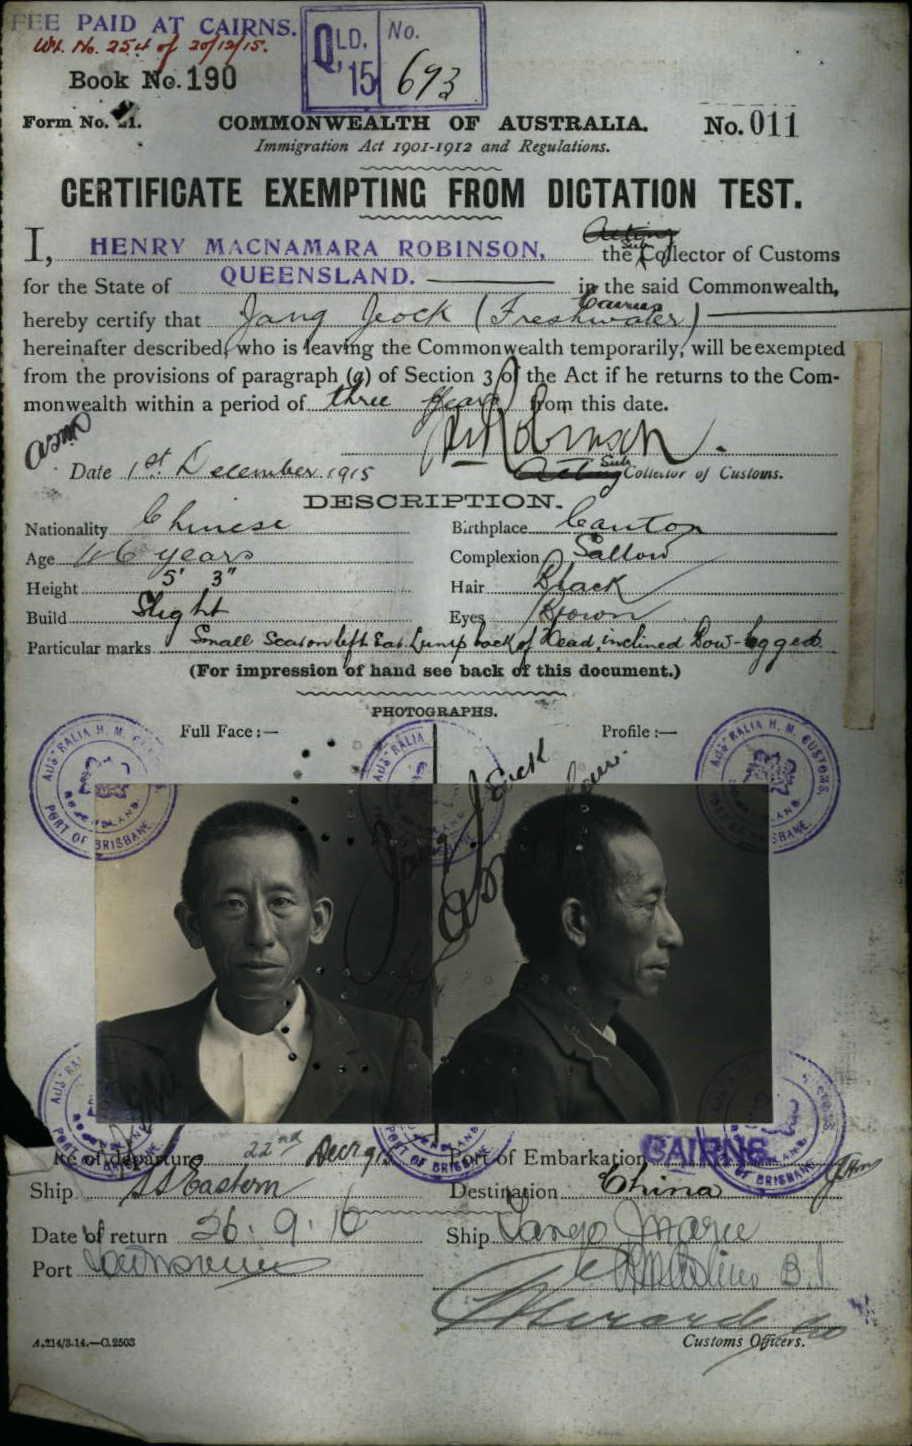 FEE PAID AT CAIRNS.
Wt. No. 254 of 20/12/15.
QLD, 15 No. 693
Book No. 190
Form No. 21.
COMMONWEALTH OF AUSTRALIA.
No. 011
Immigration Act 1901-1912 and Regulations.
CERTIFICATE EXEMPTING FROM DICTATION TEST.
Acting
Sub
I, HENRY MACNAMARA ROBINSON, the Collector of Customs
for the State of QUEENSLAND. in the said Commonwealth,
Cairns
hereby certify that Jang Jeock (Freshwater)
hereinafter described, who is leaving the Commonwealth temporarily, will be exempted
from the provisions of paragraph (a) of Section 3 of the Act if he returns to the Com-
monwealth within a period of three years from this date.
HM Robinson.
Date 1st December 1915
Acting Sub Collector of Customs.
DESCRIPTION.
Nationality Chinese Birthplace Canton
Age 46 years Complexion Sallow
Height 5' 3" Hair Black
Build Slight Eyes Brown
Particular marks Small Scar on left Ear. Lump back of Head, inclined Bow-legged.
(For impression of hand see back of this document.)
PHOTOGRAPHS.
Full Face:— Profile:—
AUSTRALIA H. M. CUSTOMS. PORT OF BRISBANE
AUSTRALIA
AUSTRALIA H. M. CUSTOMS. BRISBANE
PORT OF BRISBANE
PORT OF BRISBANE
OF BRISBANE
Date of departure 22nd Decr 915 Port of Embarkation CAIRNS
Ship SS Eastern Destination China
Date of return 26. 9. 16 Ship Tango Maru
Port Townsville
Customs Officers.
A.214/3.14.—C.2503